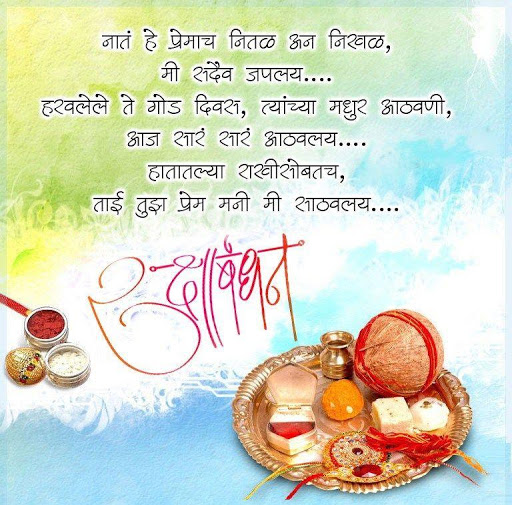 नातं हे प्रेमाच नितळ अन निखळ,
मी सदैव जपलय....
हरवलेले ते गोड दिवस, त्यांच्या मधुर आठवणी,
आज सारं सारं आठवलय....
हातातल्या राखीसोबतच,
ताई तुझं प्रेम मनी मी साठवलय....
रक्षाबंधन